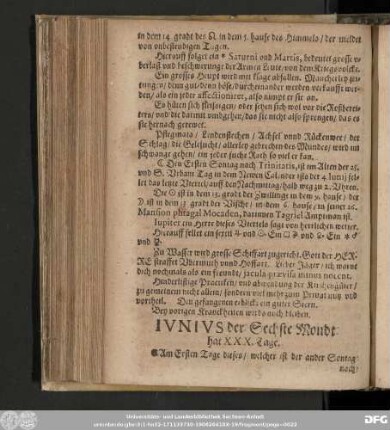 in dem 14. gradt des ♌ in dem 5. hause des Himmels / der meldet
von unbestendigen Tagen.
Hierauff folget ein * Saturni und Martis, bedeutet grosse
und beschwerunge der Armen Leute, von dem Kriegsvolcke.
Ein grosses Heupt wird mit klage abfallen. Mancherley
denn gut, denn böse / durcheinander werden verkaufft wer-
den / als ein jeder affectioniret, also nimpt er sie an.
Es hüten sich fleissigen / oder sehen sich wol vor die
rey / und die damit umbgehen / das sie nicht also sprengen / das es
sie hernach gerewet.
Pflegmata / Lendenstechen / Achsel unnd Rückenwee / der
Schlag / die Gelsucht / allerley gebrechen des Mundes / wird im
schwange gehen / ein jeder suche Rath so viel er kan.
☾ Den Ersten Sontag nach Trinitatis, ist im Alten der 25.
und S. Urbani Tag in dem Newen Calender ists der 4. Junij fel-
let das letzte Viertel / auff den Nachmittag / halb weg zu 2. Uhren.
Die ☉ ist in dem 13. gradt der Zwillinge in dem 9. hause / der
☽ ist in dem 13 gradt der Fische / in dem 6. hause / in seiner 26.
Mansion phtagal Mocaden, datinnen Tagriel Amptman ist.
Jupiter ein Herre dieses Viertels sage von herrlichen wetter.
Hierauff fellet ein
und
Zu Wasser wird grosse Schiffart zugericht. Gott der HER-
RE straffet Ubermuth unnd Hoffart. Lieber Jäger / ich warne
dich nochmals als ein freundt / jacula prævisa minus nocent.
Hinderlistige Practiken / und abwendung der Kirchengüter /
zu gemeinem nicht allein / sondern viel mehr zum Privat nutz und
vortheil. Den gefangenen erhübt ein guter Stern.
Bey vorigen Kranckheiten wirds noch bleiben.
IVNIVS der Sechste Mondt
hat XXX. Tage.
Am Ersten Tage dieses / welcher ist der ander Sontag
nach
Universitäts- und Landesbibliothek Sachsen-Anhalt
DFG